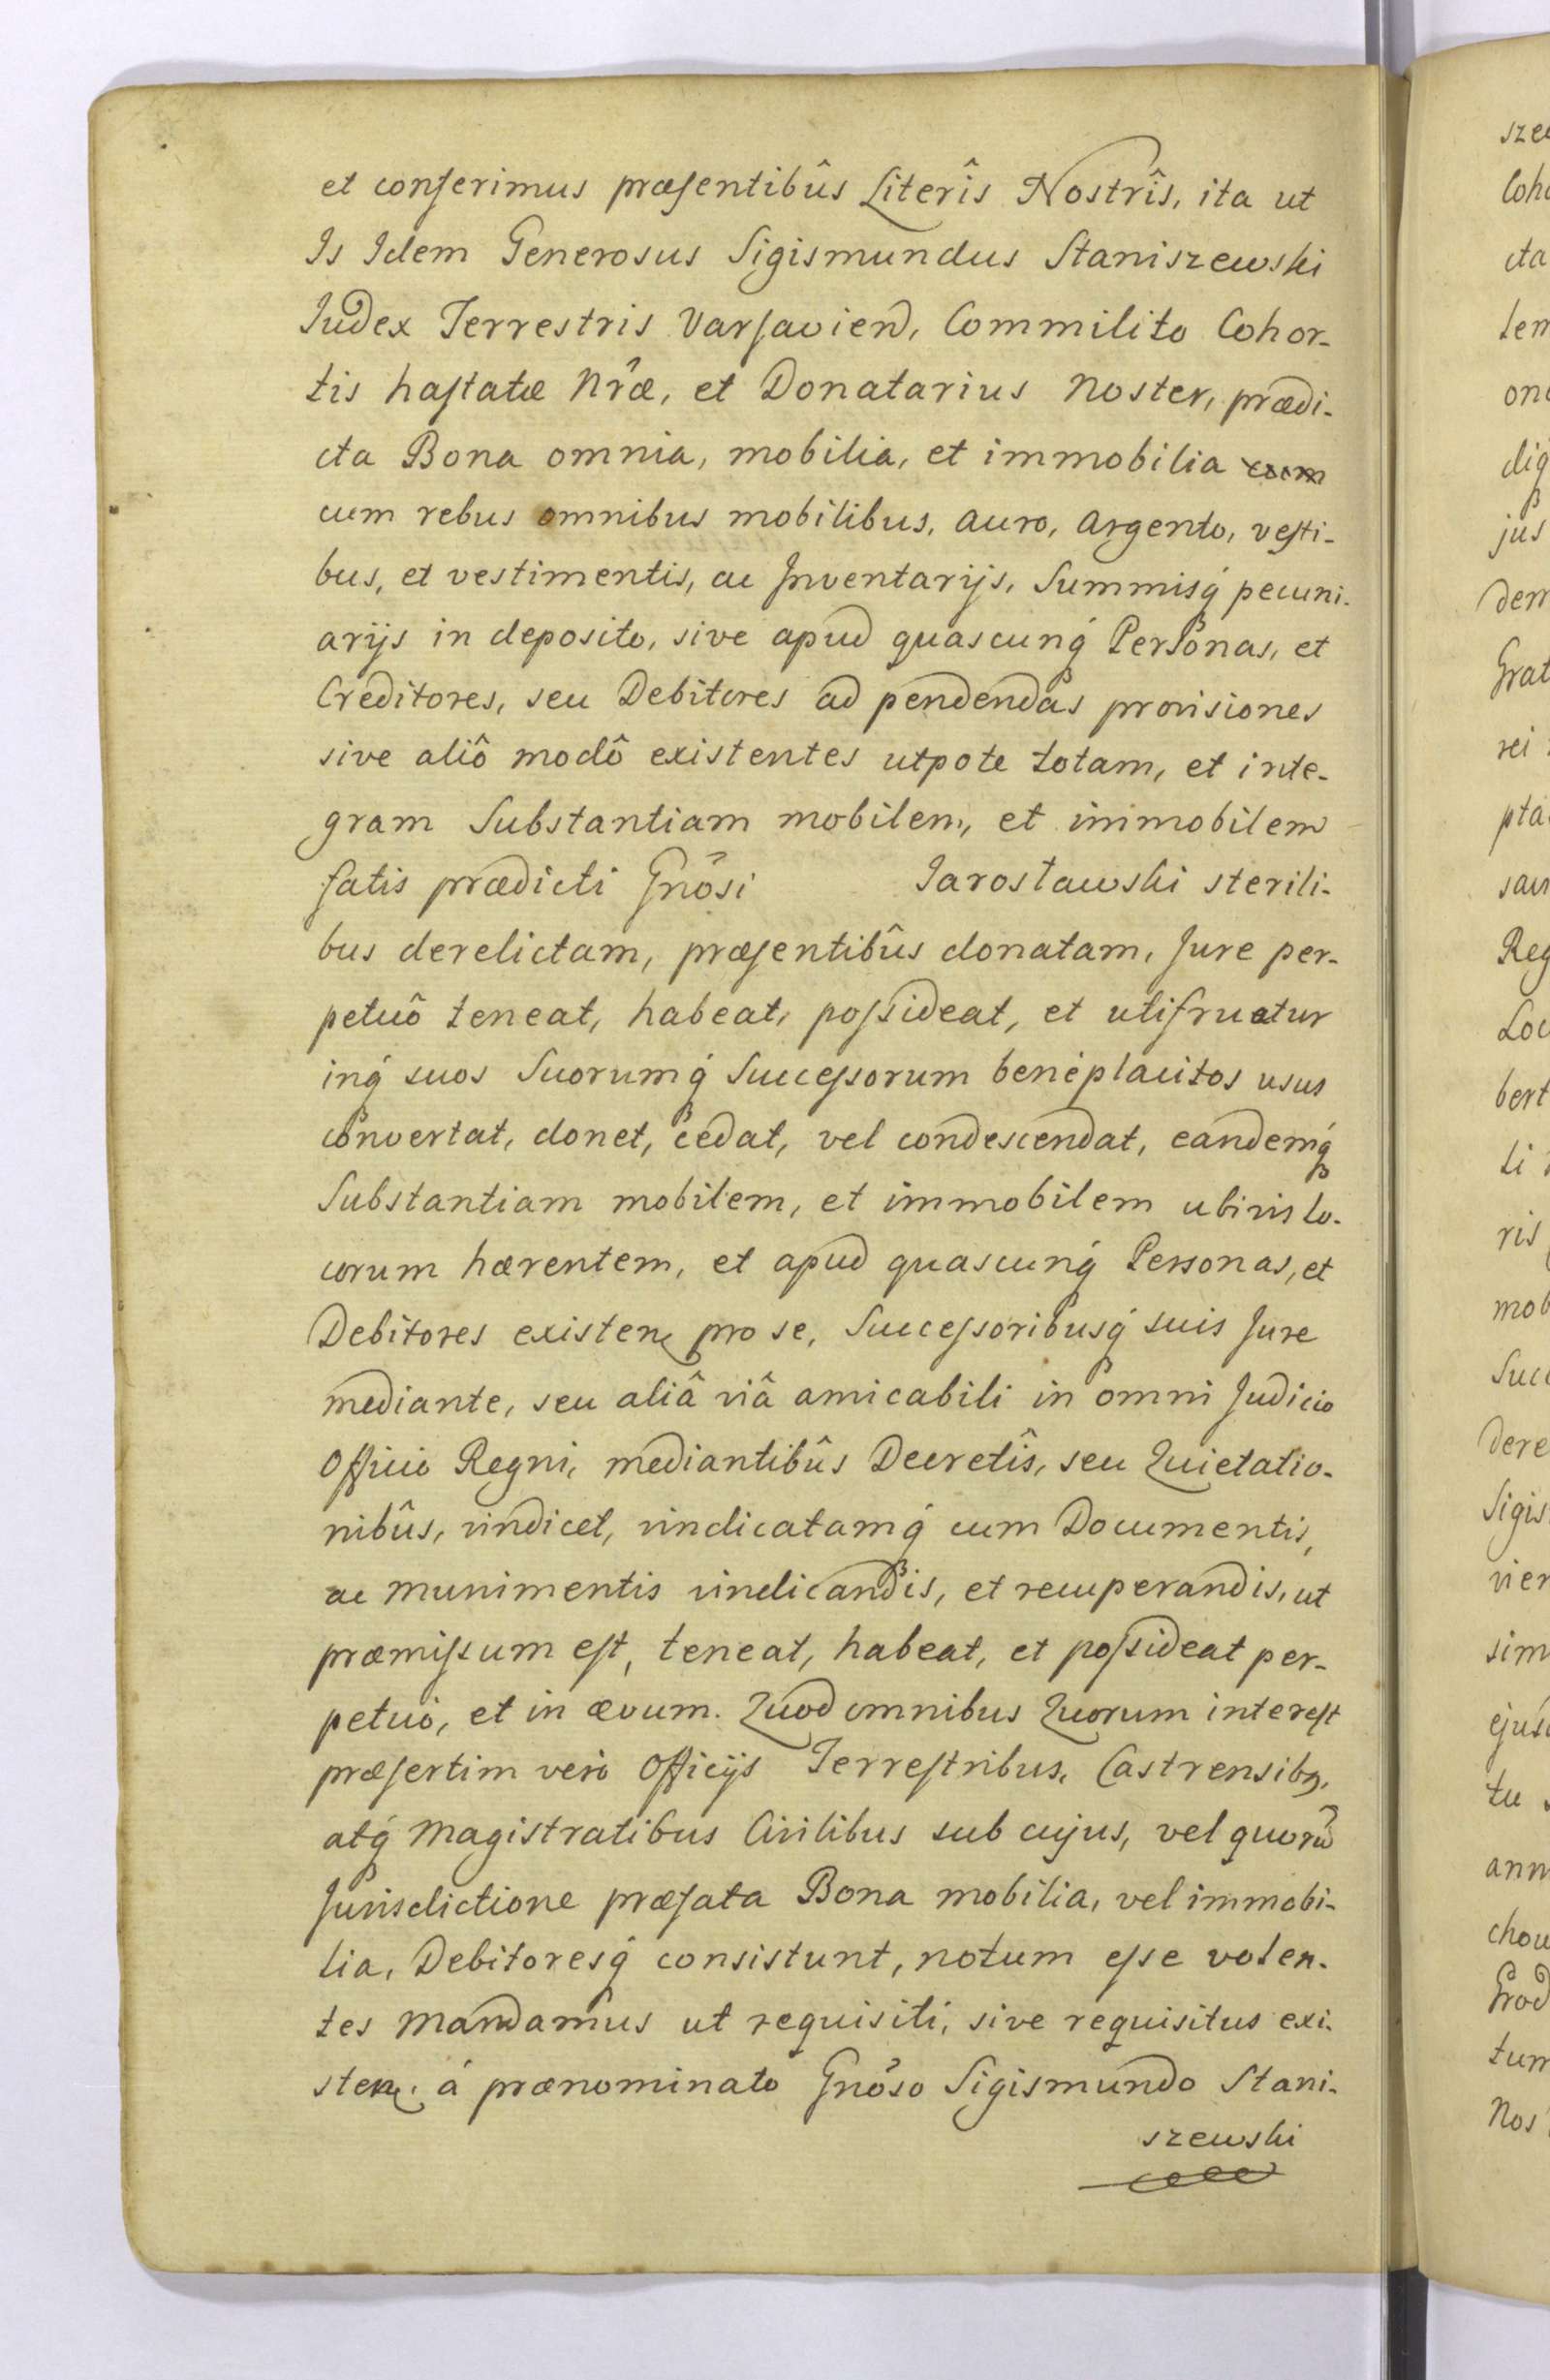 et conferimus præsentibûs Literîs Nostrîs, ita ut
Is Idem Generosus Sigismundus Staniszewski
Iudex Terrestris Varsavien, Commilito Cohor-
tis hastatæ Nræ, et Donatarius Noster, prædi-
cta Bona omnia, mobilia, et immobilia cum
cum rebus omnibus mobilibus, Auro, Argento, vesti-
bus, et vestimentis, ac Inventarijs, Summisq́ pecuni-
arijs in deposito, sive apud quascunq́ Personas, et
Creditores, seu Debitores ad pendendas provisiones
sive aliô modô existentes utpote totam, et inte-
gram Substantiam mobilem, et immobilem
satis prædicti Gnôsi Jarosławski sterili-
bus derelictam, præsentibûs donatam, Jure per-
petuô teneat, habeat, possideat, et utifruatur
inq́ suos Suorumq́ Successorum beneplacitos usus
convertat, donet, cedat, vel condescendat, eandemq́
Substantiam mobilem, et immobilem ubivis lo-
corum hærentem, et apud quascunq́ Personas, et
Debitores existen pro se, Successoribusq́ suis Jure
mediante, seu aliâ viâ amicabili in omni Judicio
Officio Regni, mediantibûs Decretîs, seu Quietatio-
nibûs, vindicet, vindicatamq́ cum Documentis,
ac munimentis vindicandis, et recuperandis, ut
præmissum est, teneat, habeat, et possideat per-
petuò, et in ævum. Quod omnibus Quorum interest
præsertim verò Officijs Terrestribus, Castrensibq,
atq́ Magistratibus Civilibus sub cujus, vel quorũ
Jurisdictione præfata Bona mobilia, vel immobi-
lia, Debitoresq́ consistunt, notum esse volen-
tes Mandamus ut requisiti, sive requisitus exi-
sten. á prænominato Gnôso Sigismundo Stani-
szewski